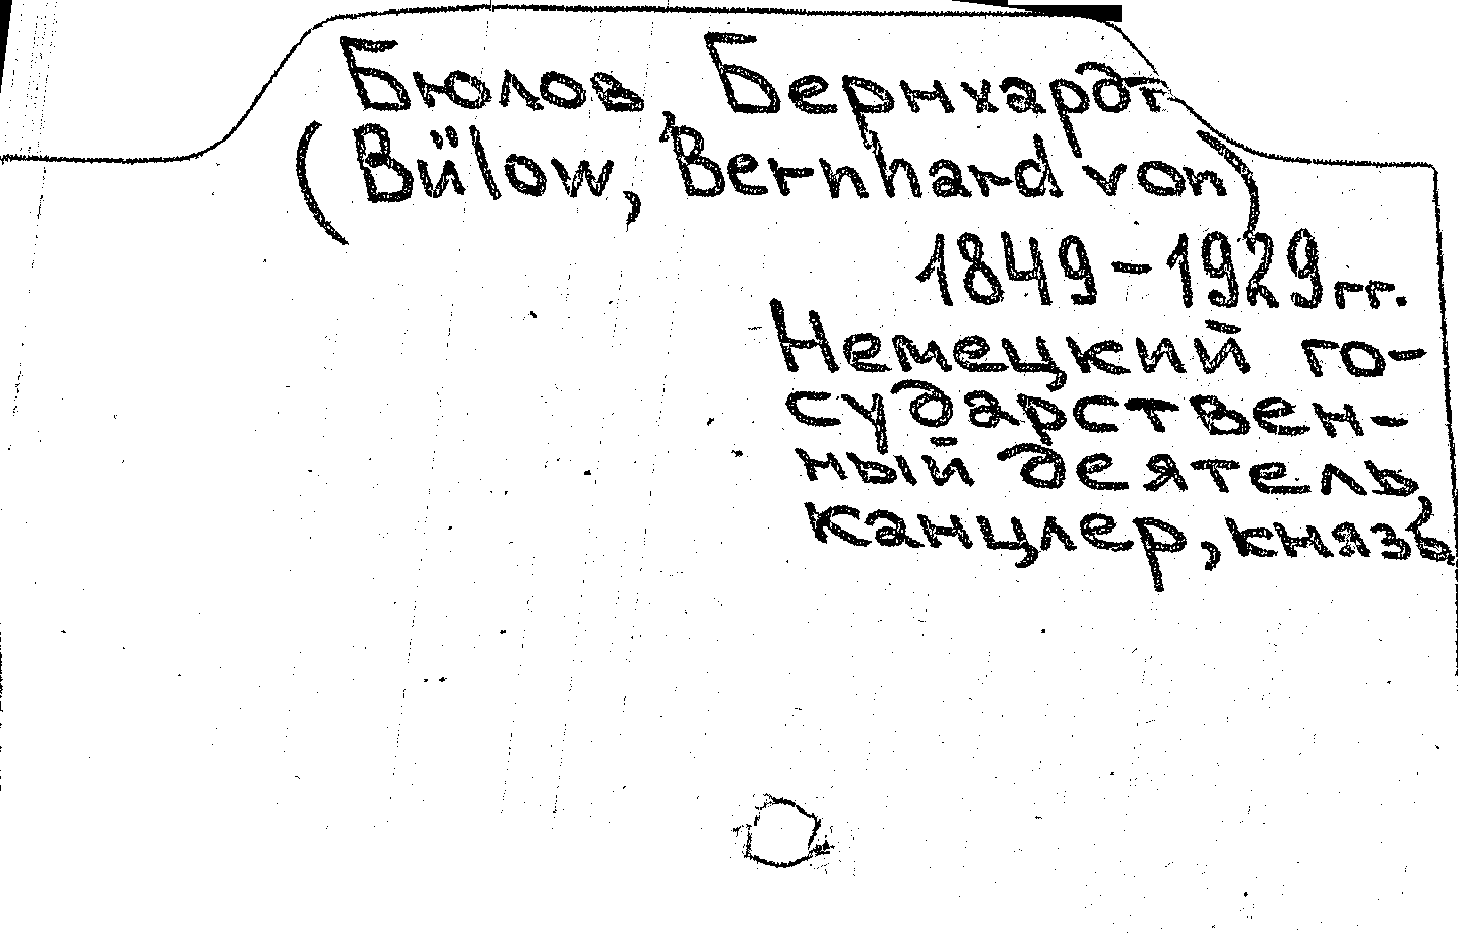 Бюлов, Бернхардт
(Bülow, Bernhard von)
1849-1929гг.
Немецкий го-
сударствен-
ный деятель,
канцлер, князь